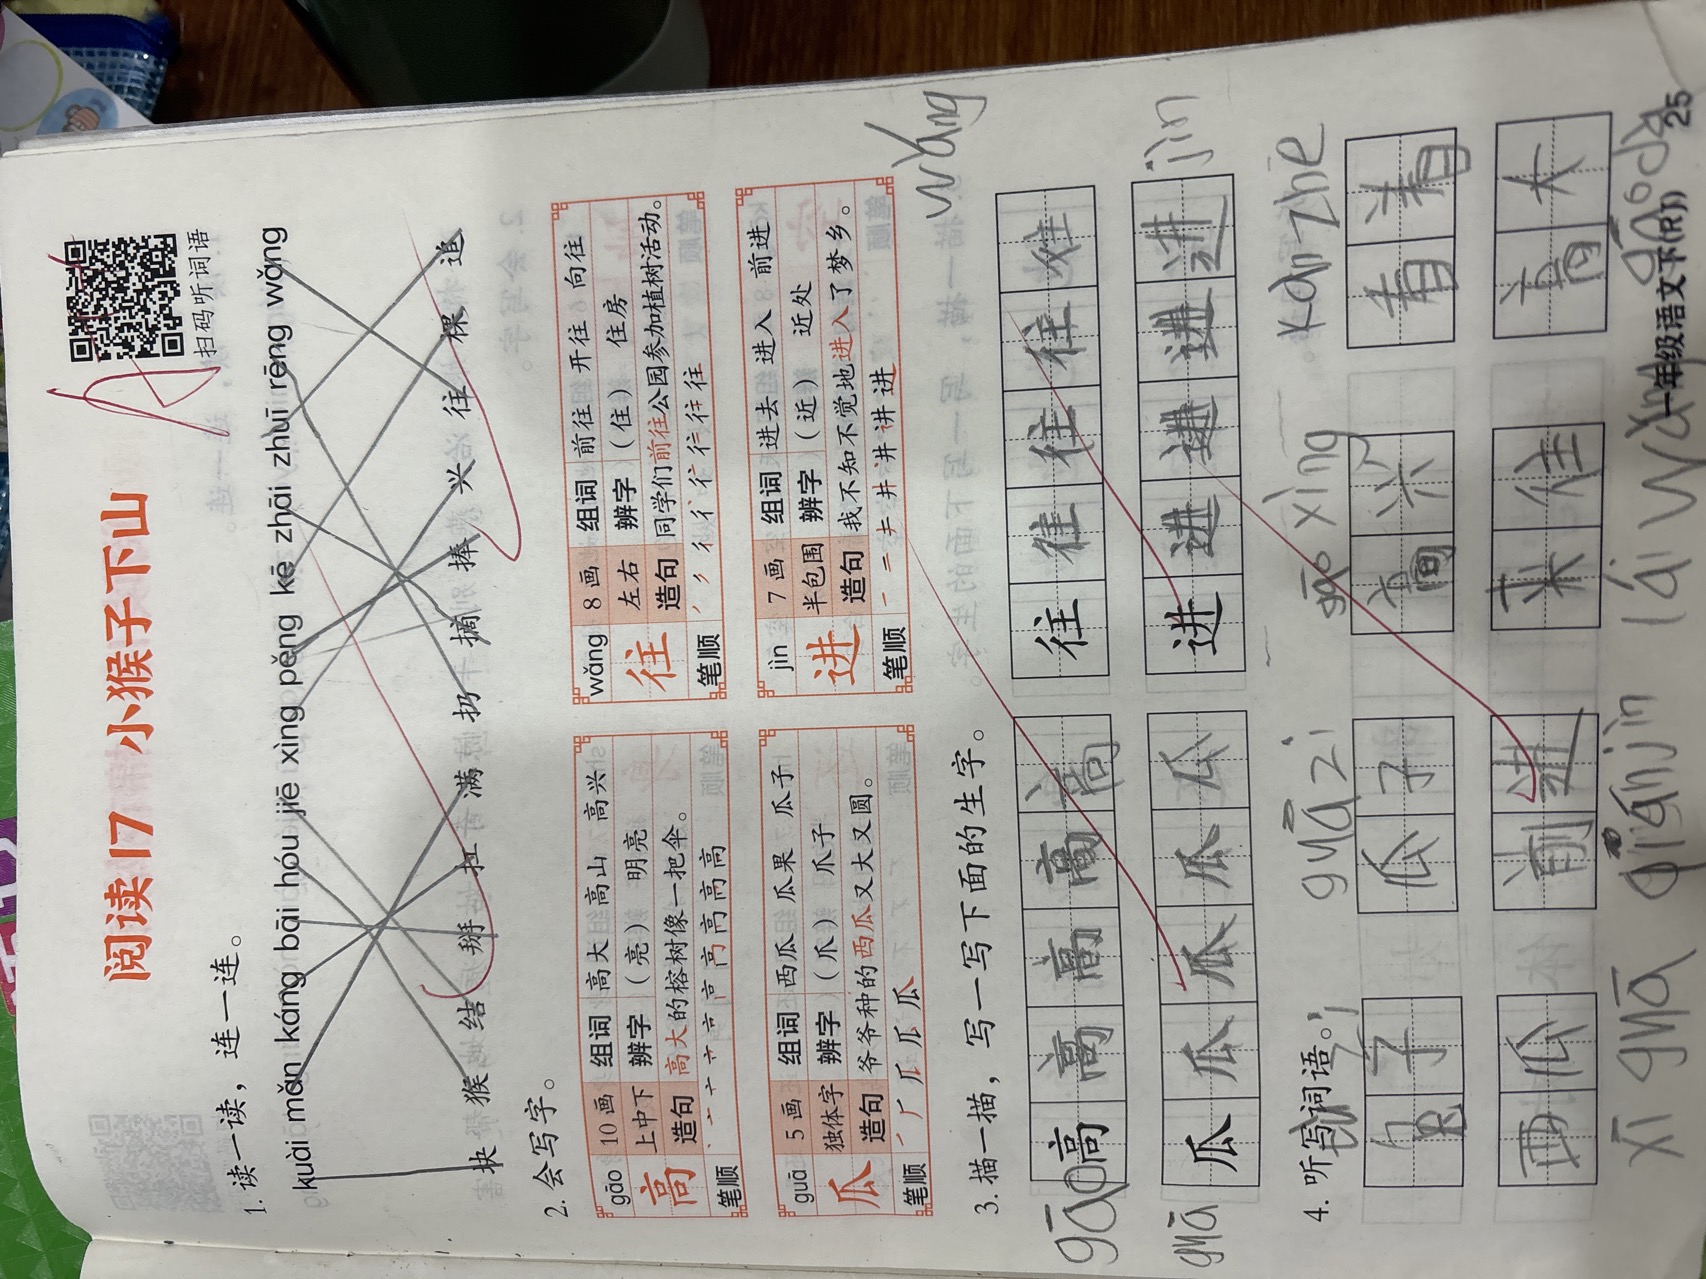 阅读 17 小猴子下山
扫码听词语
1. 读一读，连一连。
kuài mǎn káng bāi hóu jiē xìng pěng kē zhāi zhuī rēng wǎng
块 猴 结 掰 扛 满 扔 摘 捧 兴 往 棵 追
2. 会写字。
gāo 10画 上中下
高
组词 高大 高山 高兴
辨字 （亮） 明亮
造句 高大的榕树像一把伞。
笔顺
wǎng 8画 左右
往
组词 前往 开往 向往
辨字 （住） 住房
造句 同学们前往公园参加植树活动。
笔顺
guā 5画 独体字
瓜
组词 西瓜 瓜果 瓜子
辨字 （爪） 爪子
造句 爷爷种的西瓜又大又圆。
笔顺
jìn 7画 半包围
进
组词 进去 进入 前进
辨字 （近） 近处
造句 我不知不觉地进入了梦乡。
笔顺
3. 描一描，写一写下面的生字。
wǎng
gāo 高 高 高 高 高 往 往 往 往 往
guā 瓜 瓜 瓜 瓜 瓜 进 进 进 进 进 jìn
4. 听写词语。
guā zi gāo xìng kàn zhe
兔子 瓜子 高兴 看着
西瓜 前进 来往 高大
xī guā qián jìn lái wǎng gāo dà
一年级语文下(RJ)
25